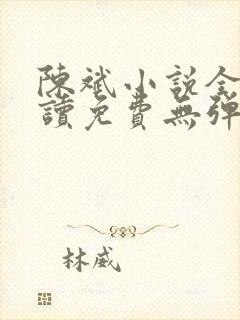 陳斌小説全
讀免費無彈
林威